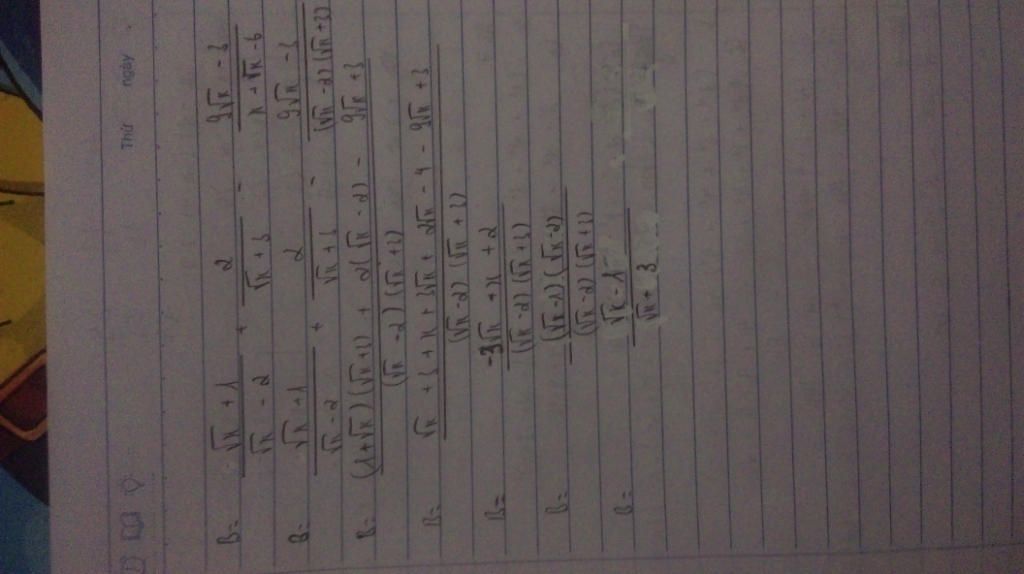 Thứ ngày
B = \frac{\sqrt{x} + 1}{\sqrt{x} - 2} + \frac{2}{\sqrt{x} + 3} - \frac{9\sqrt{x} - 3}{x + \sqrt{x} - 6}
B = \frac{\sqrt{x} + 1}{\sqrt{x} - 2} + \frac{2}{\sqrt{x} + 3} - \frac{9\sqrt{x} - 3}{(\sqrt{x} - 2)(\sqrt{x} + 3)}
B = \frac{(1 + \sqrt{x})(\sqrt{x} + 3) + 2(\sqrt{x} - 2) - 9\sqrt{x} + 3}{(\sqrt{x} - 2)(\sqrt{x} + 3)}
B = \frac{\sqrt{x} + 3 + x + 3\sqrt{x} + 2\sqrt{x} - 4 - 9\sqrt{x} + 3}{(\sqrt{x} - 2)(\sqrt{x} + 3)}
B = \frac{-3\sqrt{x} + x + 2}{(\sqrt{x} - 2)(\sqrt{x} + 3)}
B = \frac{(\sqrt{x} - 1)(\sqrt{x} - 2)}{(\sqrt{x} - 2)(\sqrt{x} + 3)}
B = \frac{\sqrt{x} - 1}{\sqrt{x} + 3}